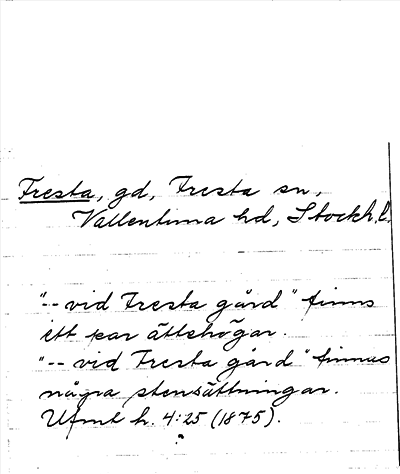 Fresta, gd, Fresta sn,
Vallentuna hd, Stockh.l.
"-- vid Fresta gård" finns
ett par ättehögar.
"-- vid Fresta gård" finnas
några stensättningar.
Ufmt h. 4:25 (1875).